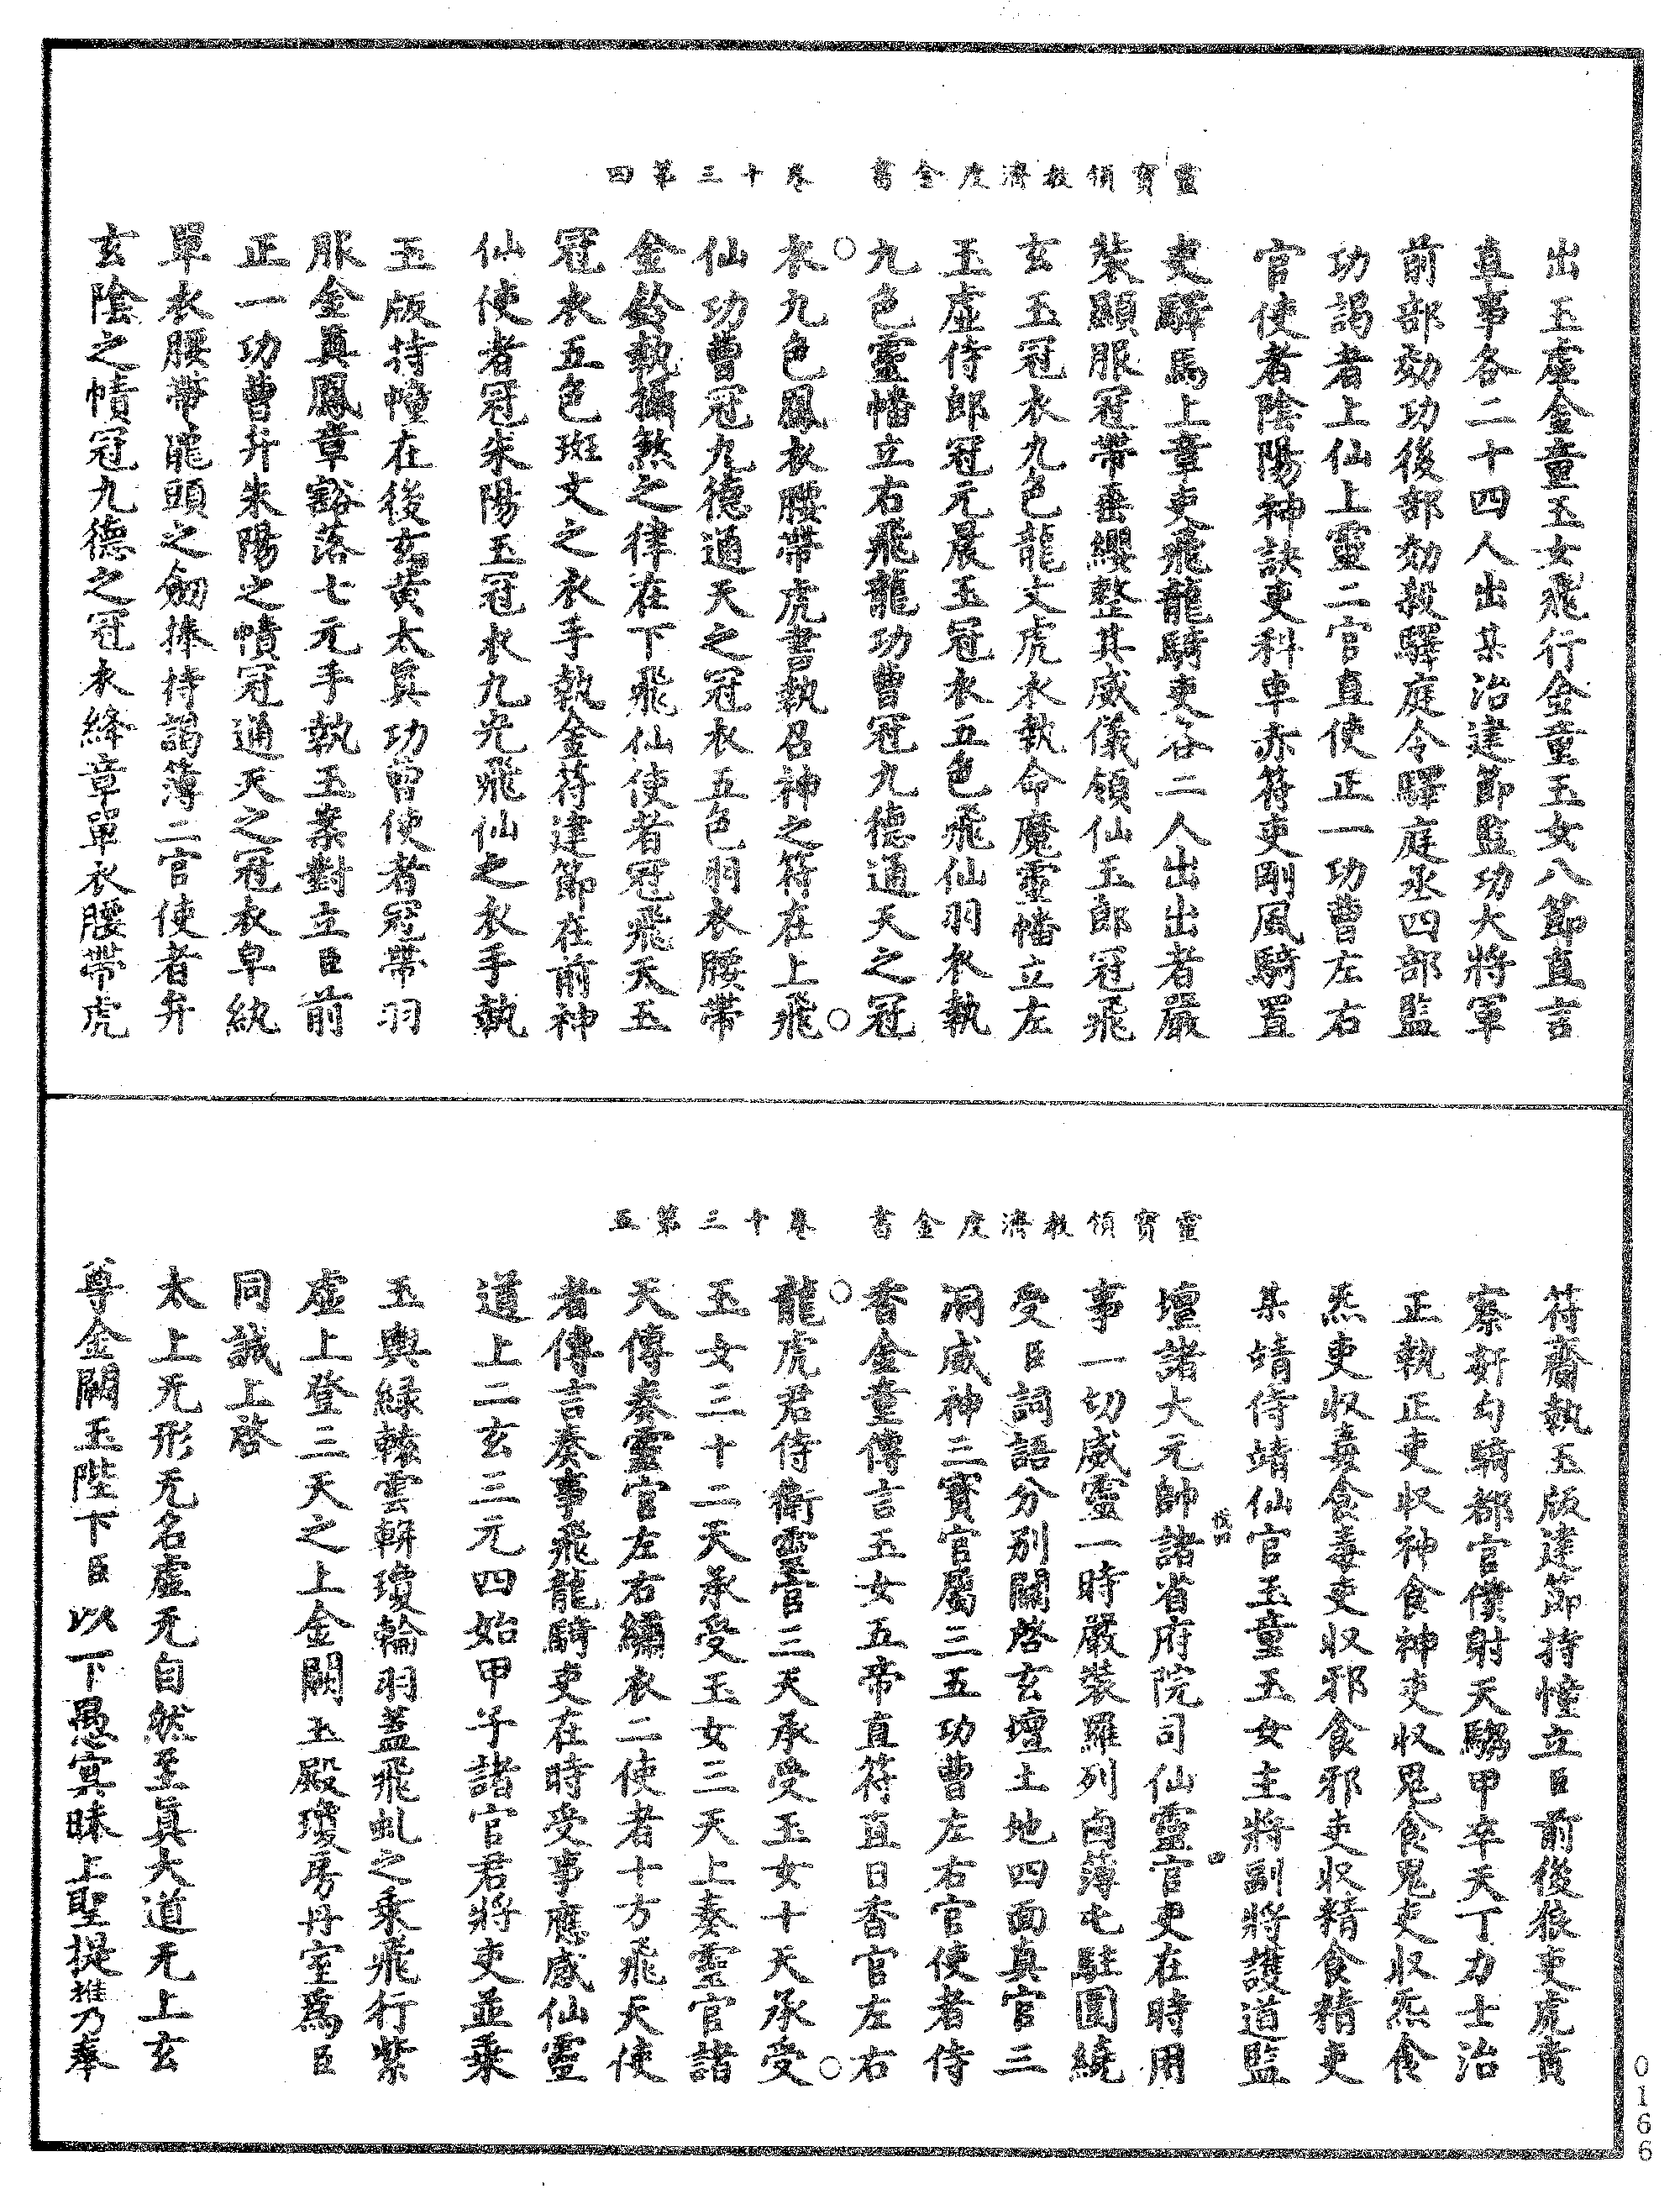 靈寶領教濟度金書　卷十三第四
出玉虛金童玉女飛行金童玉女八節直言
直事各二十四人出某治建節監功大將軍
前部効功後部効殺驛庭令驛庭丞四部監
功謁者上仙上靈二官直使正一功曹左右
官使者陰陽神訣吏科車赤符吏剛風騎置
吏驛馬上章吏飛龍騎吏各二人出出者嚴
裝顯服冠帶垂纓整其威儀領仙玉郎冠飛
玄玉冠衣九色龍文虎衣執命魔靈幡立左
玉虛侍郎冠元晨玉冠衣五色飛仙羽衣執
九色靈幡立右飛龍功曹冠九德通天之冠
衣九色鳳衣腰帶虎書執召神之符在上飛
仙功曹冠九德通天之冠衣五色羽衣腰帶
金鈴執攝煞之律在下飛仙使者冠飛天玉
冠衣五色斑文之衣手執金符建節在前神
仙使者冠朱陽玉冠衣九光飛仙之衣手執
玉版持幢在後玄黃太真功曹使者冠帶羽
服金真鳳章豁落七元手執玉案對立臣前
正一功曹弁朱陽之幘冠通天之冠衣皁紈
單衣腰帶龍頭之劒捧持謁簿二官使者弁
玄陰之幘冠九德之冠衣絳章單衣腰帶虎
靈寶領教濟度金書　卷十三第五
符齎執玉版建節持幢立臣前後狼吏虎賁
察奸勾騎都官僕射天騶甲卒天丁力士治
正執正吏収神食神吏収鬼食鬼吏収炁食
炁吏収毒食毒吏収邪食邪吏収精食精吏
某靖侍靖仙官玉童玉女主將副將護道監
壇諸大元帥諸省府院司仙靈官吏在時用
事一切威靈一時嚴裝羅列鹵薄屯駐圍繞
受臣詞語分別關啓玄壇土地四面真官三
洞威神三寶官屬三五功曹左右官使者侍
香金童傳言玉女五帝直符直日香官左右
龍虎君侍衛靈官三天承受玉女十天承受
玉女三十二天承受玉女三天上奏靈官諸
天傳奏靈官左右繡衣二使者十方飛天使
者傳言奏事飛龍騎吏在時受事應感仙靈
道上二玄三元四始甲子諸官君將吏並乘
玉輿緑轅雲輧瓊輪羽蓋飛虬之乘飛行紫
虛上登三天之上金闕玉殿瓊房丹室為臣
同誠上啓
太上无形无名虛无自然至真大道无上玄
尊金闕玉陛下臣以下愚冥昧上聖提推乃奉
0166